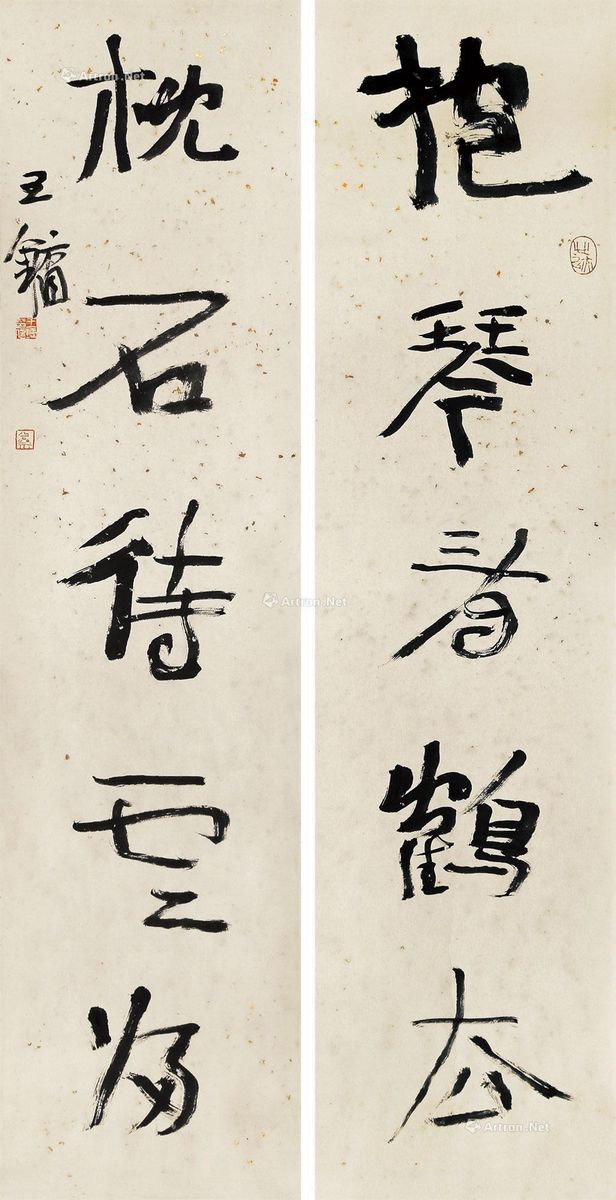 抱琴看鶴去
枕石待雲歸
王鏞
Artron.Net
Artron.Net
Artron.Net